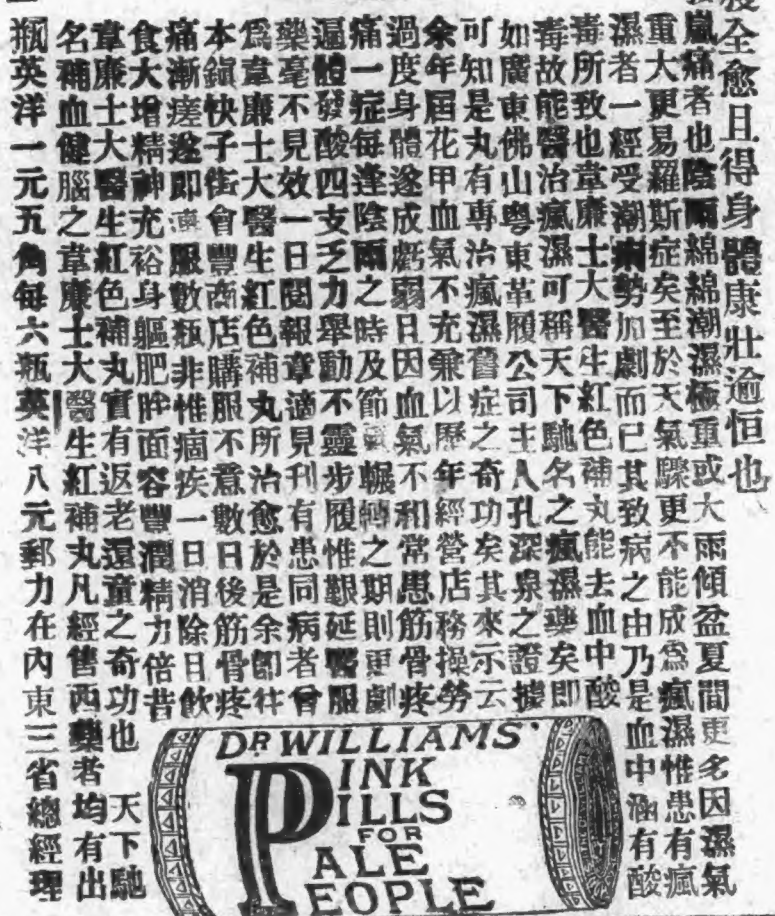 全愈且得身體康壯逾恒也
嵐痛者也陰雨綿綿潮濕極重或大雨傾盆夏間更多因濕氣
重大更易羅斯症矣至於天氣驟更不能成爲瘋濕惟患有瘋
濕者一經受潮病勢加劇而已其致病之由乃是血中涵有酸
毒所致也韋廉士大醫生紅色補丸能去血中酸
毒故能醫治瘋濕可稱天下馳名之瘋濕藥矣即
如廣東佛山粵東革履公司主人孔深泉之證據
可知是丸有專治瘋濕舊症之奇功矣其來示云
余年屆花甲血氣不充兼以歷年經營店務操勞
過度身體遂成虧弱且因血氣不和常患筋骨疼
痛一症每逢陰雨之時及節 輾轉之期則更劇
遍體發酸四支乏力舉動不靈步履惟艱延醫服
藥毫不見效一日閱報章適見刊有患同病者曾
爲韋廉士大醫生紅色補丸所治愈於是余即往
本鎮快子街會豐商店購服不意數日後筋骨疼
痛漸瘥遂即 服數瓶非惟痼疾一日消除日飲
食大增精神充裕身軀肥胖面容豐潤精力倍昔
韋廉士大醫生紅色補丸實有返老還童之奇功也 天下馳
名補血健腦之韋廉士大醫生紅補丸凡經售西藥者均有出
瓶英洋一元五角每六瓶英洋八元郵力在內東三省總經理
DR WILLIAMS'
PINK
PILLS
FOR
PALE
PEOPLE